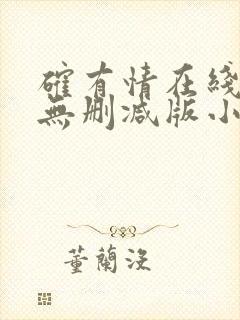 確有情在綫
無刪減版小
董蘭沒